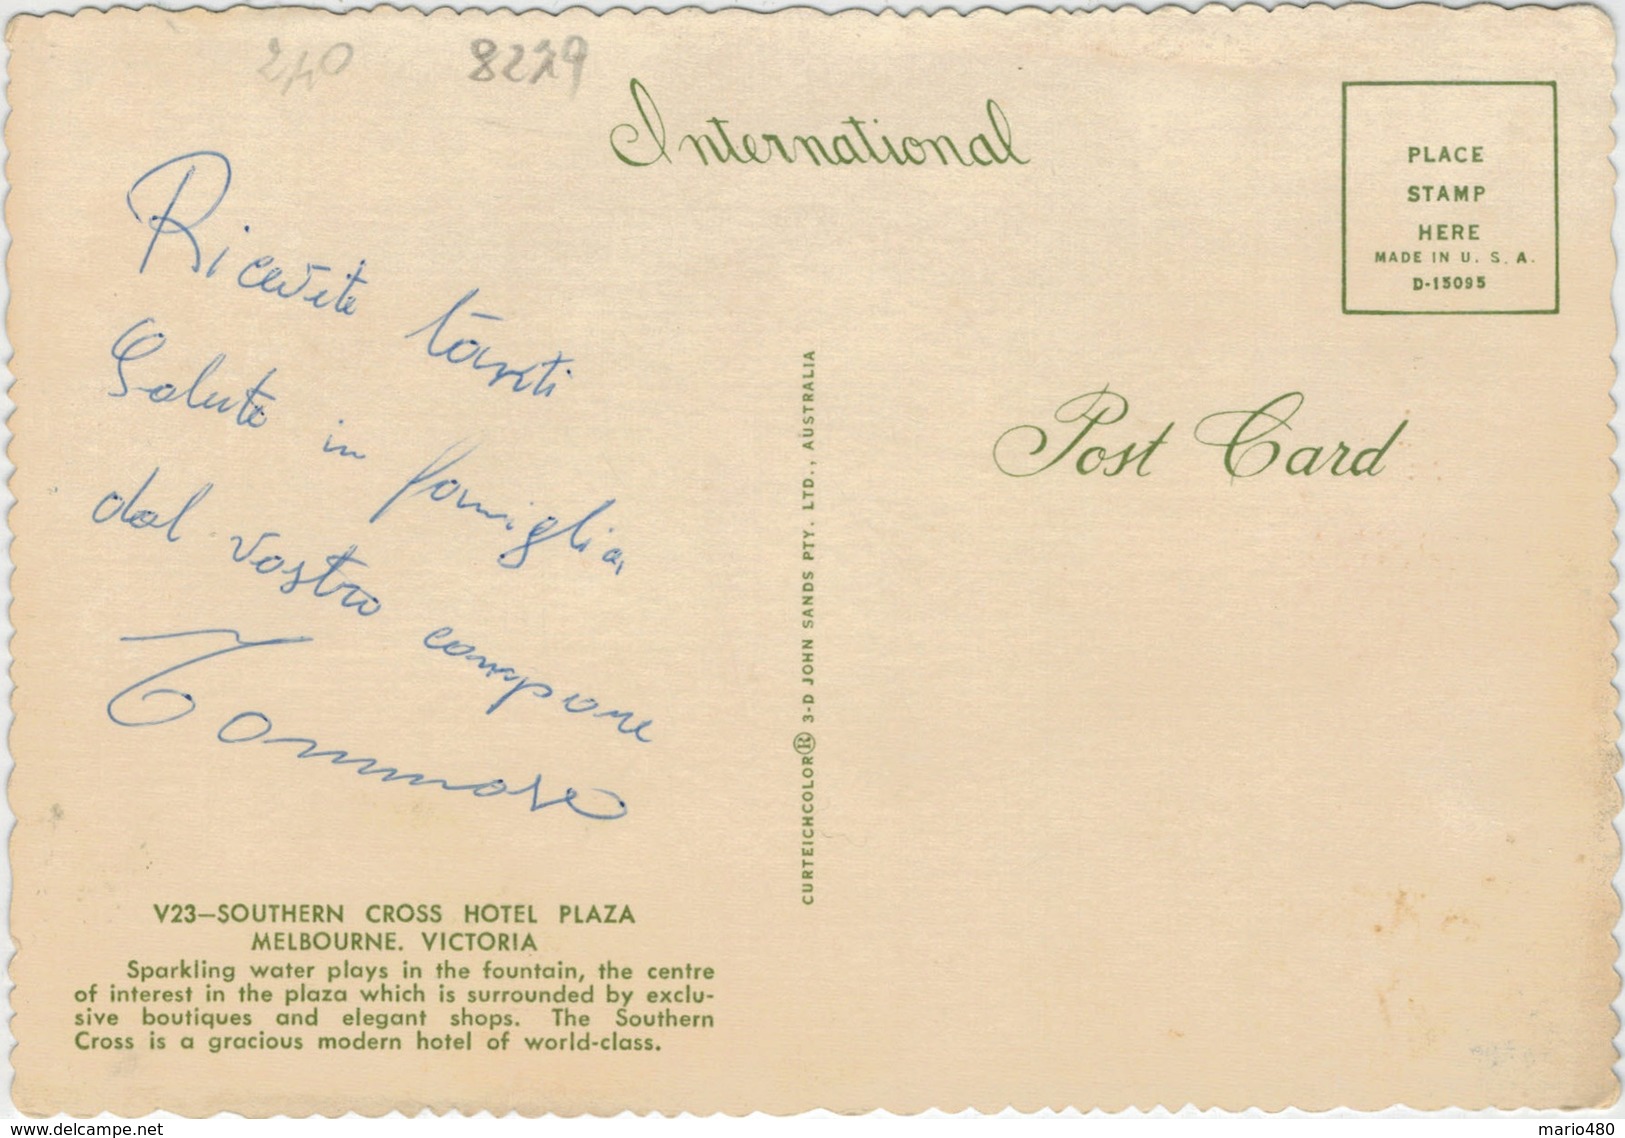 240 8229
International
PLACE
STAMP
HERE
MADE IN U. S. A.
D-15095
Ricevete tanti
Salute in famiglia,
dal vostro campone
Tommaso
Post Card
CURTEICHCOLOR® 3-D JOHN SANDS PTY. LTD., AUSTRALIA
V23—SOUTHERN CROSS HOTEL PLAZA
MELBOURNE. VICTORIA
Sparkling water plays in the fountain, the centre
of interest in the plaza which is surrounded by exclu-
sive boutiques and elegant shops. The Southern
Cross is a gracious modern hotel of world-class.
www.delcampe.net
mario480